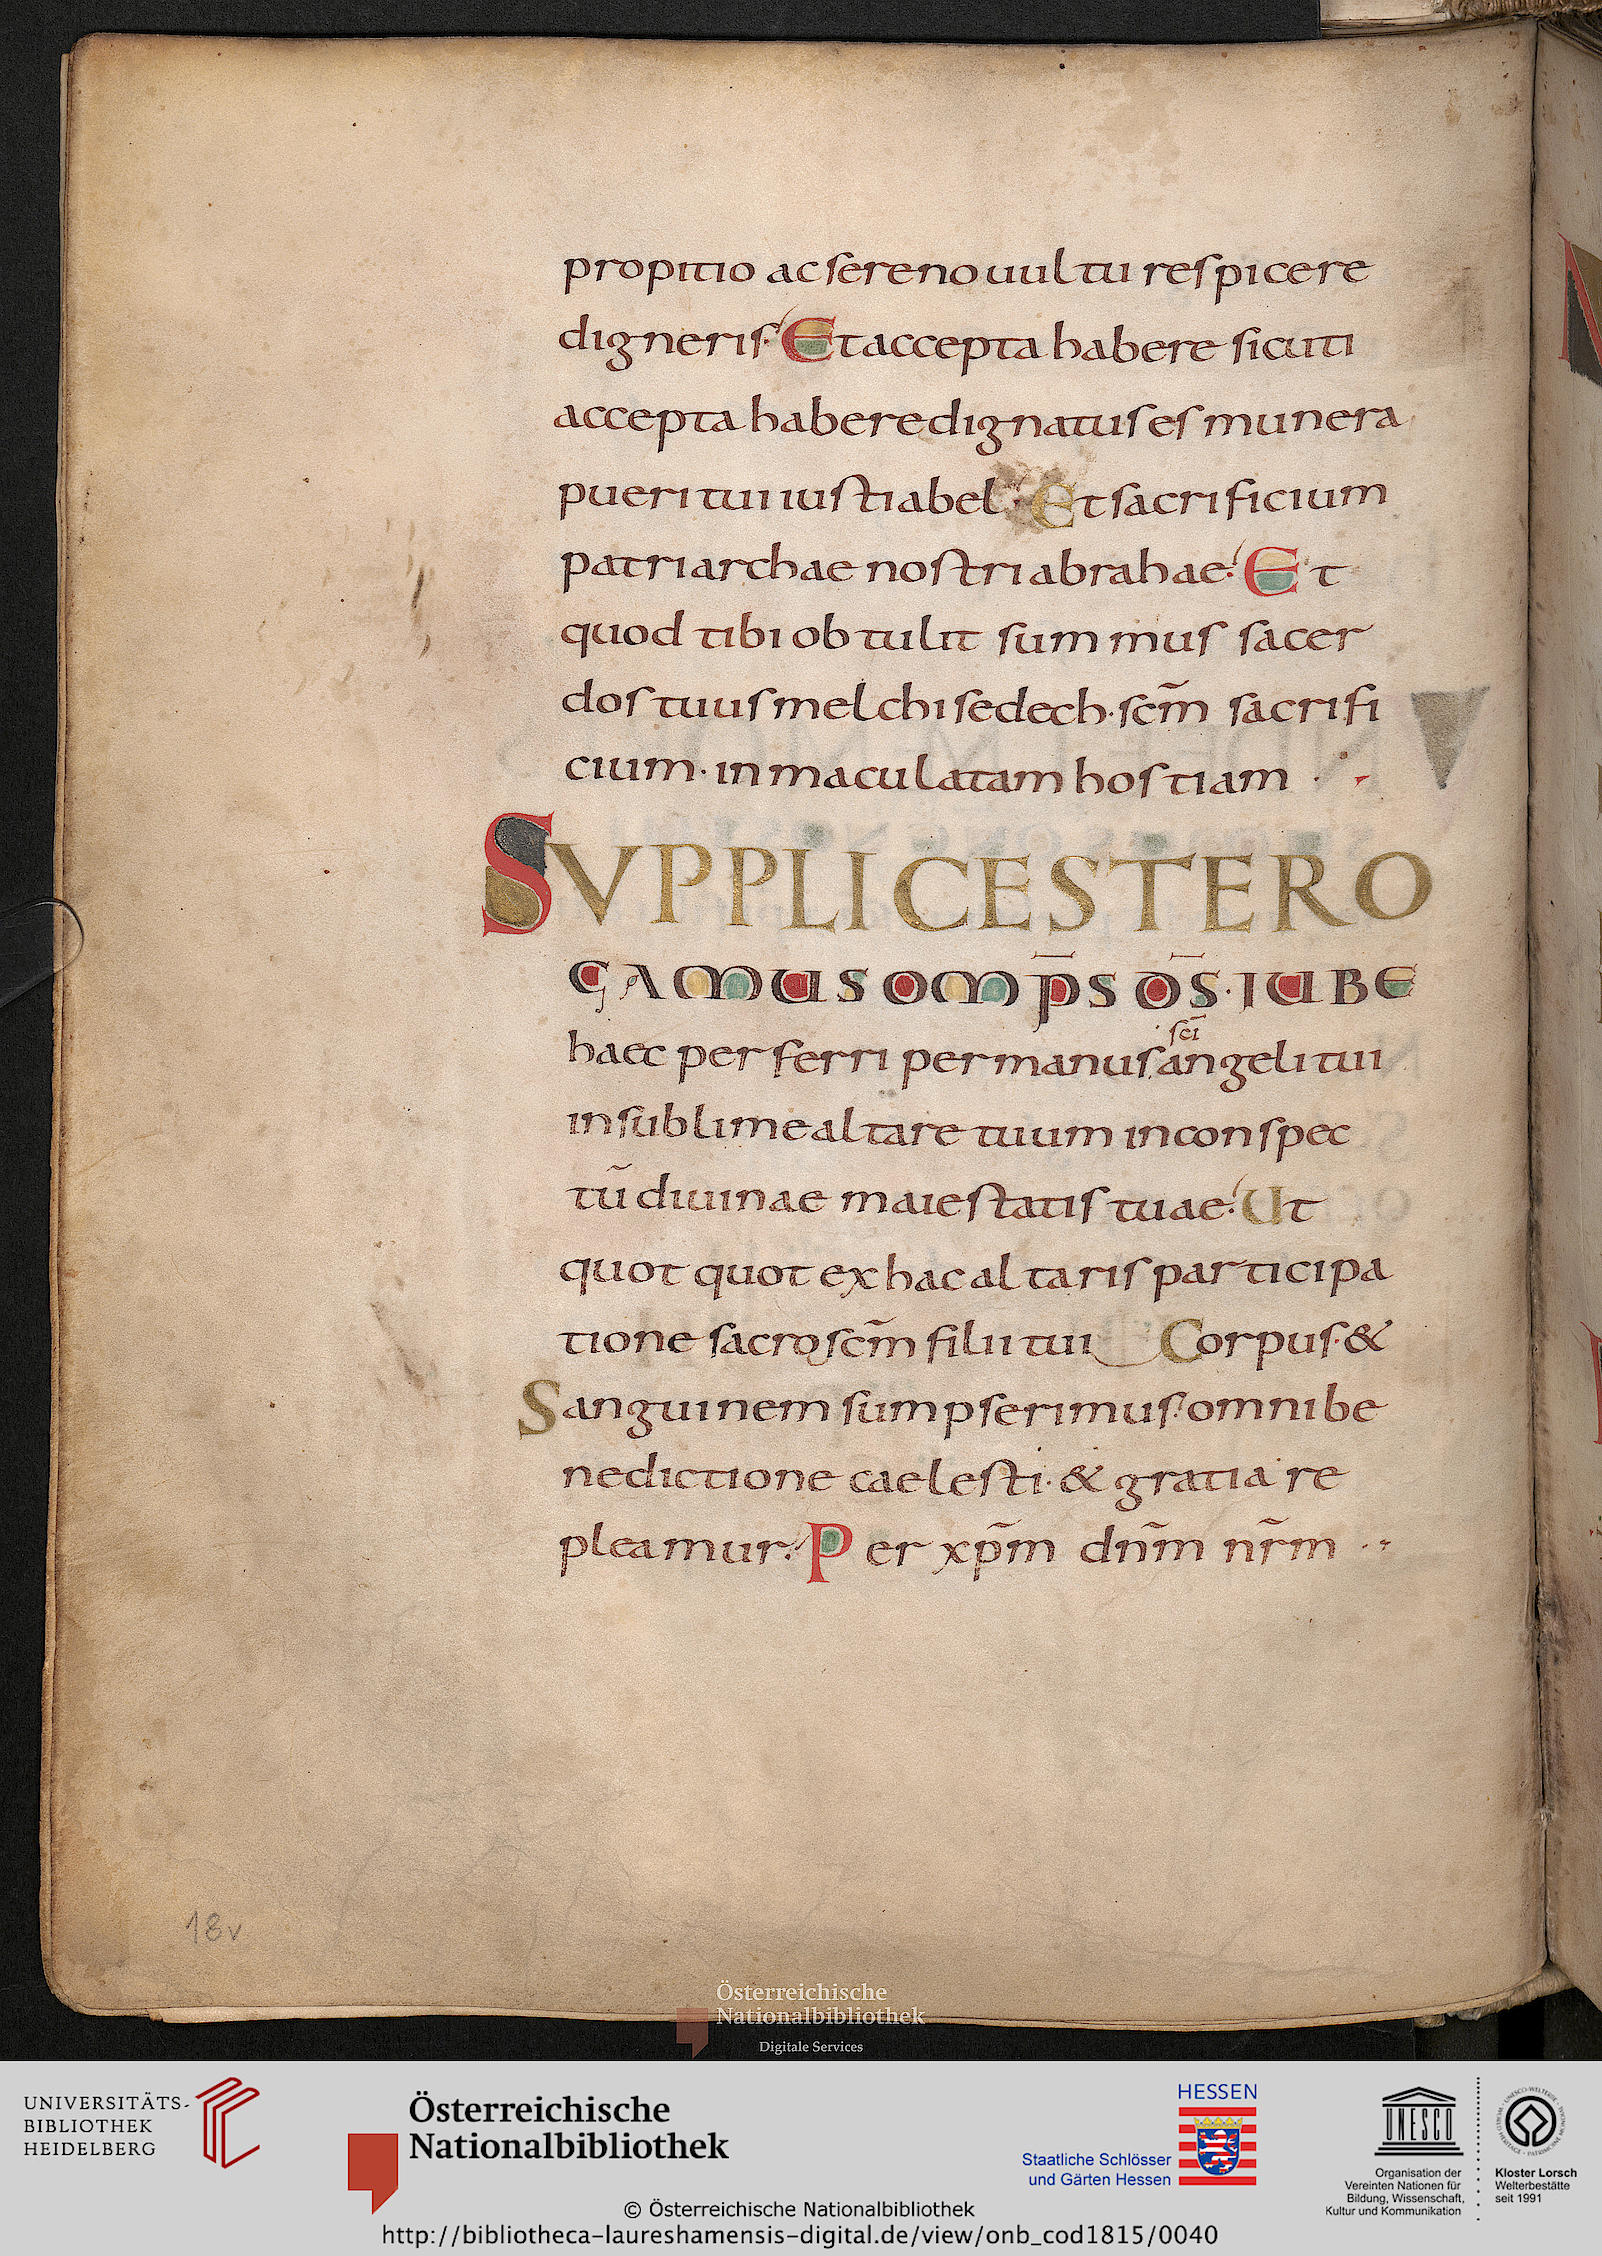 propitio ac sereno uultu respicere
digneris· Et accepta habere sicuti
accepta habere dignatus es munera
pueri tui iusti abel· Et sacrificium
patriarchae nostri abrahae· Et
quod tibi obtulit summus sacer
dos tuus melchisedech· scm̄ sacrifi
cium· inmaculatam hostiam
SUPPLICES TE RO
GAMUS OMP̄S D̄S· IUBE
sc̄i
haec perferri per manus angeli tui
in sublime altare tuum in conspec
tū diuinae maiestatis tuae· Ut
quot quot ex hac altaris participa
tione sacroscm̄ filii tui Corpus· &
Sanguinem sumpserimus· omni be
nedictione caelesti· & gratia re
pleamur· Per xp̄m dn̄m nr̄m
18v
Österreichische
Nationalbibliothek
Digitale Services
UNIVERSITÄTS-
BIBLIOTHEK
HEIDELBERG
Österreichische
Nationalbibliothek
HESSEN
Staatliche Schlösser
und Gärten Hessen
UNESCO
Organisation der
Vereinten Nationen für
Bildung, Wissenschaft,
Kultur und Kommunikation
Kloster Lorsch
Welterbestätte
seit 1991
© Österreichische Nationalbibliothek
http://bibliotheca-laureshamensis-digital.de/view/onb_cod1815/0040